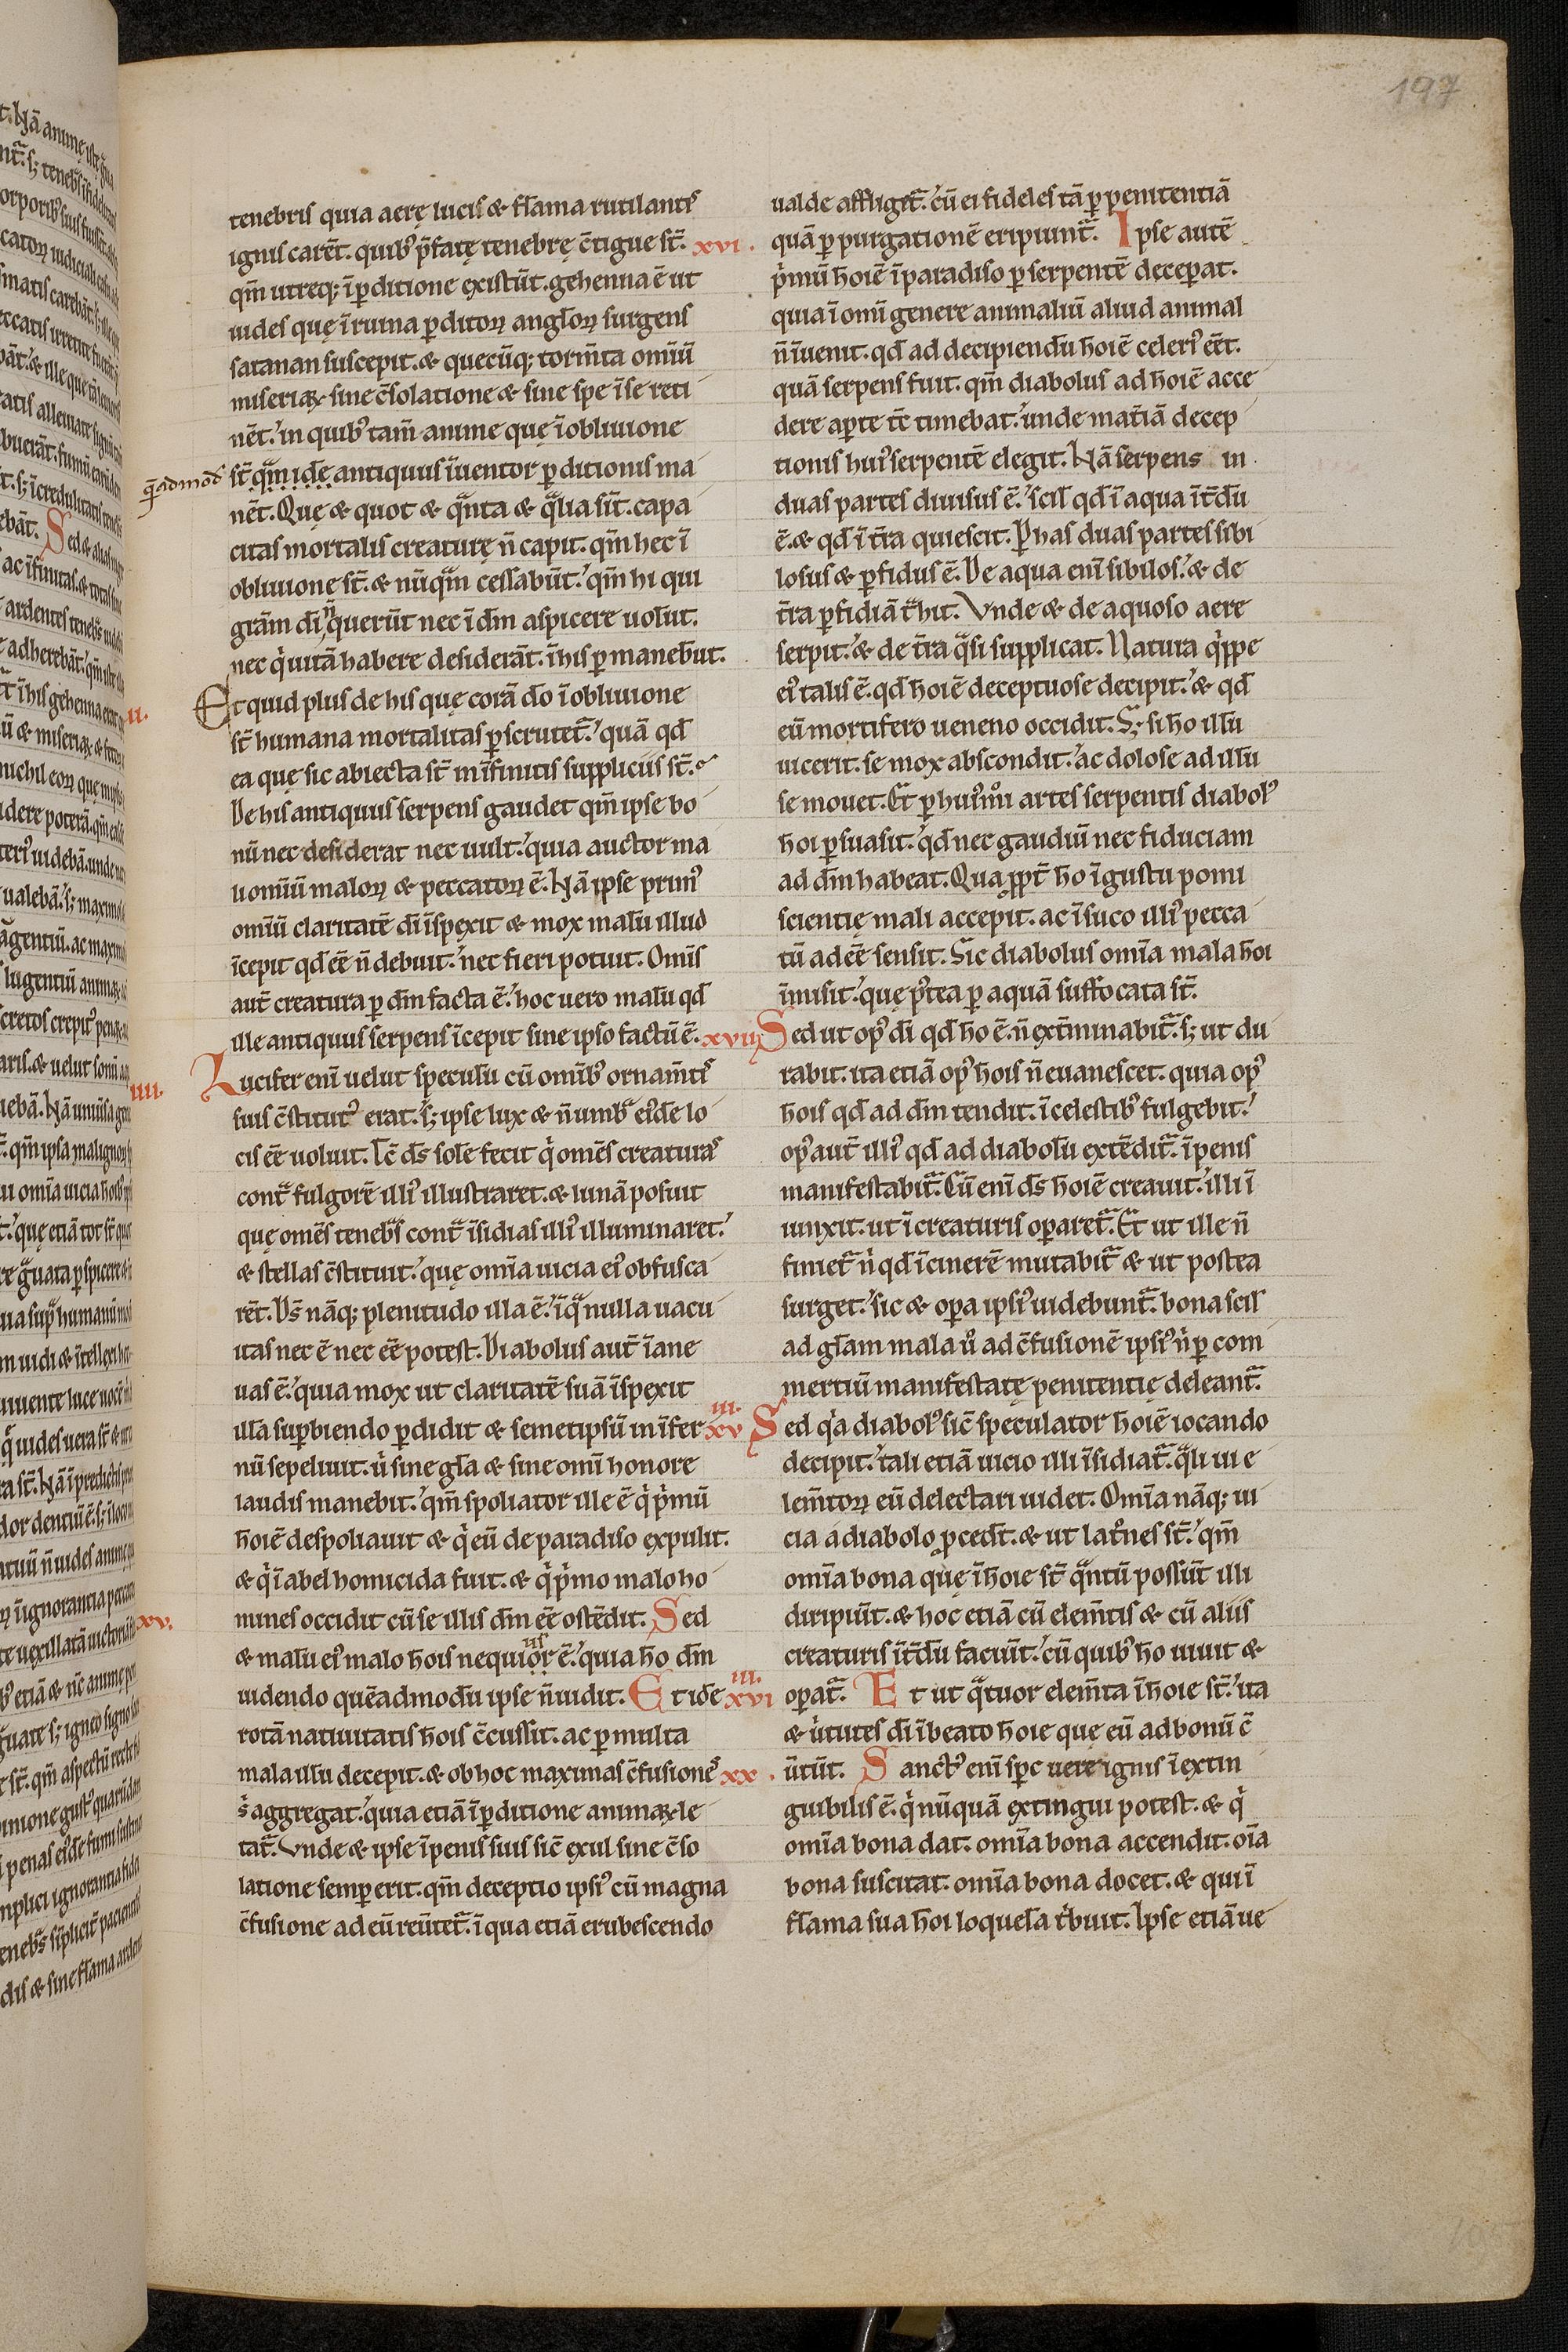 197
tenebris quia aerę lucis & flāma rutilantis
ignis carēt. quibꝰ p̄fatę tenebrę c̄tigue st̄. xvi.
qm̄ utreq; ī ꝑditione existūt. gehenna ē ut
uides quę ī ruina ꝑditoꝝ angl̄oꝝ surgens
satanan suscepit. & quecūq; torm̄ta omīū
miseriaꝝ sine c̄solatione & sine spe ī se reti
nēt. in quibꝰ tam̄ anime quę ī obliuione
q̄admod̄ st̄ qm̄ idē antiquus īuentor ꝑditionis ma
nēt. Quę & quot & qͣnta & qͣlia sīt. capa
citas mortalis creaturę n̄ capit. qm̄ hec ī
obliuione st̄. & nūqͣm cessabūt. qm̄ hi qui
grām dī n̄ querūt nec ī dm̄ aspicere uolūt.
nec qͥ uitā habere desiderāt. ī his ꝑmanebūt.
Et quid plus de his quę corā dō ī obliuione
st̄ humana mortalitas ꝑscrutet̄. quā qd̄
ea quę sic abiecta st̄ in īfinitis suppliciis st̄.
De his antiquus serpens gaudet qm̄ ipse bo
nū nec desiderat nec uult. quia auctor ma
u omīū maloꝝ & peccatoꝝ ē. Nā ipse primꝰ
omīū claritatē dī īspexit & mox malū illud
īcepit qd̄ eē n̄ debuit. nec fieri potuit. Omīs
aut̄ creatura ꝑ dm̄ facta ē. hoc uero malū qd̄
ille antiquus serpens īcepit sine ipso factū ē.
iiii. Lucifer enī uelut speculū cū omībꝰ ornam̄tis
suis c̄stitutꝰ erat. s; ipse lux & n̄ umbͣ eiꝰdē lo
cis eē uoluit. Tc̄ ds̄ solē fecit qͥ omēs creaturas
contͣ fulgorē illiꝰ illustraret. & lunā posuit
que omēs tenebͣs contͣ īsidias illiꝰ illuminaret.
& stellas c̄stituit. quę omīa uicia eiꝰ obfusca
rēt. Ds̄ nāq; plenitudo illa ē. ī qͣ nulla uacu
itas nec ē nec eē potest. Diabolus aut̄ īane
uas ē. quia mox ut claritatē suā īspexit
illa suꝑbiendo ꝑdidit & semetipsū in īfer
nū sepeliuit. ū sine gl̄a & sine omī honore
laudis manebit. qm̄ spoliator ille ē qͥ pͥmū
hoiē despoliauit & qͥ eū de paradiso expulit.
& qͥ ī abel homicida fuit. & qͥ pͥmo malo ho
xv. mines occidit cū se illis dm̄ eē ostēdit. Sed
& malū eiꝰ malo hois nequiorus ē. quia ho dm̄
uidendo quēadmodū ipse n̄ uidit. Et idē
rotā natiuitatis hois c̄cussit. ac ꝑ multa
mala illū decepit. & ob hoc maximas c̄fusionēs
sͥ aggregat. quia etiā ī ꝑditione animaꝝ le
tat̄. Vnde & ipse ī penis suis sic̄ exul sine c̄so
latione semꝑ erit. qm̄ deceptio ipsiꝰ cū magna
c̄fusione ad eū reūtet̄. ī qua etiā erubescendo
ualde affliget̄. cū ei fideles tā ꝑ penitentiā
quā ꝑ purgationē eripiunt̄. Ipse autē
pͥmū hoiē ī paradiso ꝑ serpentē deceperat.
quia ī omī genere animaliū aliud animal
n̄ īuenit. qd̄ ad decipiendū hoiē celeriꝰ eēt.
quā serpens fuit. qm̄ diabolus ad hoiē acce
dere aꝑte tc̄ timebat. unde mat̄iā decep
tionis huiꝰ serpentē elegit. Nā serpens in
duas partes diuisus ē. scil̄ qd̄ ī aqua īt̄dū
ē. & qd̄ ī t̄ra quiescit. P has duas partes sibi
losus & ꝑfidus ē. De aqua enī sibilos. & de
t̄ra ꝑfidiā tͣhit. Vnde & de aquoso aere
serpit. & de t̄ra qͣsi supplicat. Natura qͥppe
eiꝰ talis ē. qd̄ hoiē deceptuose decipit. & qd̄
eū mortifero ueneno occidit. S; si ho illū
uicerit. se mox abscondit. ac dolose ad illū
se mouet. Et ꝑ huiꝰmͦi artes serpentis diabolꝰ
hoi ꝑsuasit. qd̄ nec gaudiū nec fiduciam
ad dm̄ habeat. Quaꝓpt̄ ho ī gustu pomi
scientię mali accepit. ac ī suco illiꝰ pecca
tū adeē sensit. Sic diabolus omīa mala hoi
īmisit. quę pꝰtea ꝑ aquā suffocata st̄.
xvii Sed ut opꝰ dī qd̄ ho ē. n̄ ext̄minabit̄. s; ut du
rabit. ita etiā opꝰ hois n̄ euanescet. quia opꝰ
hois qd̄ ad dm̄ tendit. ī celestibꝰ fulgebit.
opꝰ aut̄ illiꝰ qd̄ ad diabolū extēdit̄. ī penis
manifestabit̄. Cū enī ds̄ hoiē creauit. illi ī
iunxit. ut ī creaturis oꝑaret̄. Et ut ille n̄
finiet̄ nͥ qd̄ ī cinerē mutabit̄ & ut postea
surget. sic & oꝑa ipsiꝰ uidebunt̄. bona scil̄
ad gl̄am mala uͦ ad c̄fusionē ipsiꝰ nͥ ꝑ com
mertiū manifestatę penitentię deleant̄.
xviii Sed qͥa diabolꝰ sic̄ speculator hoiē iocando
decipit. tali etiā uicio illi īsidiat̄. qͣli ui e
lem̄toꝝ eū delectari uidet. Omīa nāq; ui
cia a diabolo ꝓcedt̄. & ut latͦnes st̄. qm̄
omīa bona que ī hoie st̄ qͣntū possūt illi
diripiūt. & hoc etiā cū elem̄tis & cū aliis
creaturis īt̄dū faciūt. cū quibꝰ ho uiuit &
xviiii oꝑat̄. Et ut qͣtuor elem̄ta ī hoie st̄. ita
& uͥtutes dī ī beato hoie que eū ad bonū c̄
xx. ūtūt. Sanctꝰ enī spc̄ uere ignis īextin
guibilis ē. qͥ nūquā extingui potest. & qͥ
omīa bona dat. omīa bona accendit. oīa
bona suscitat. omīa bona docet. & qui ī
flāma sua hoi loquelā tͥbuit. Ipse etiā ue